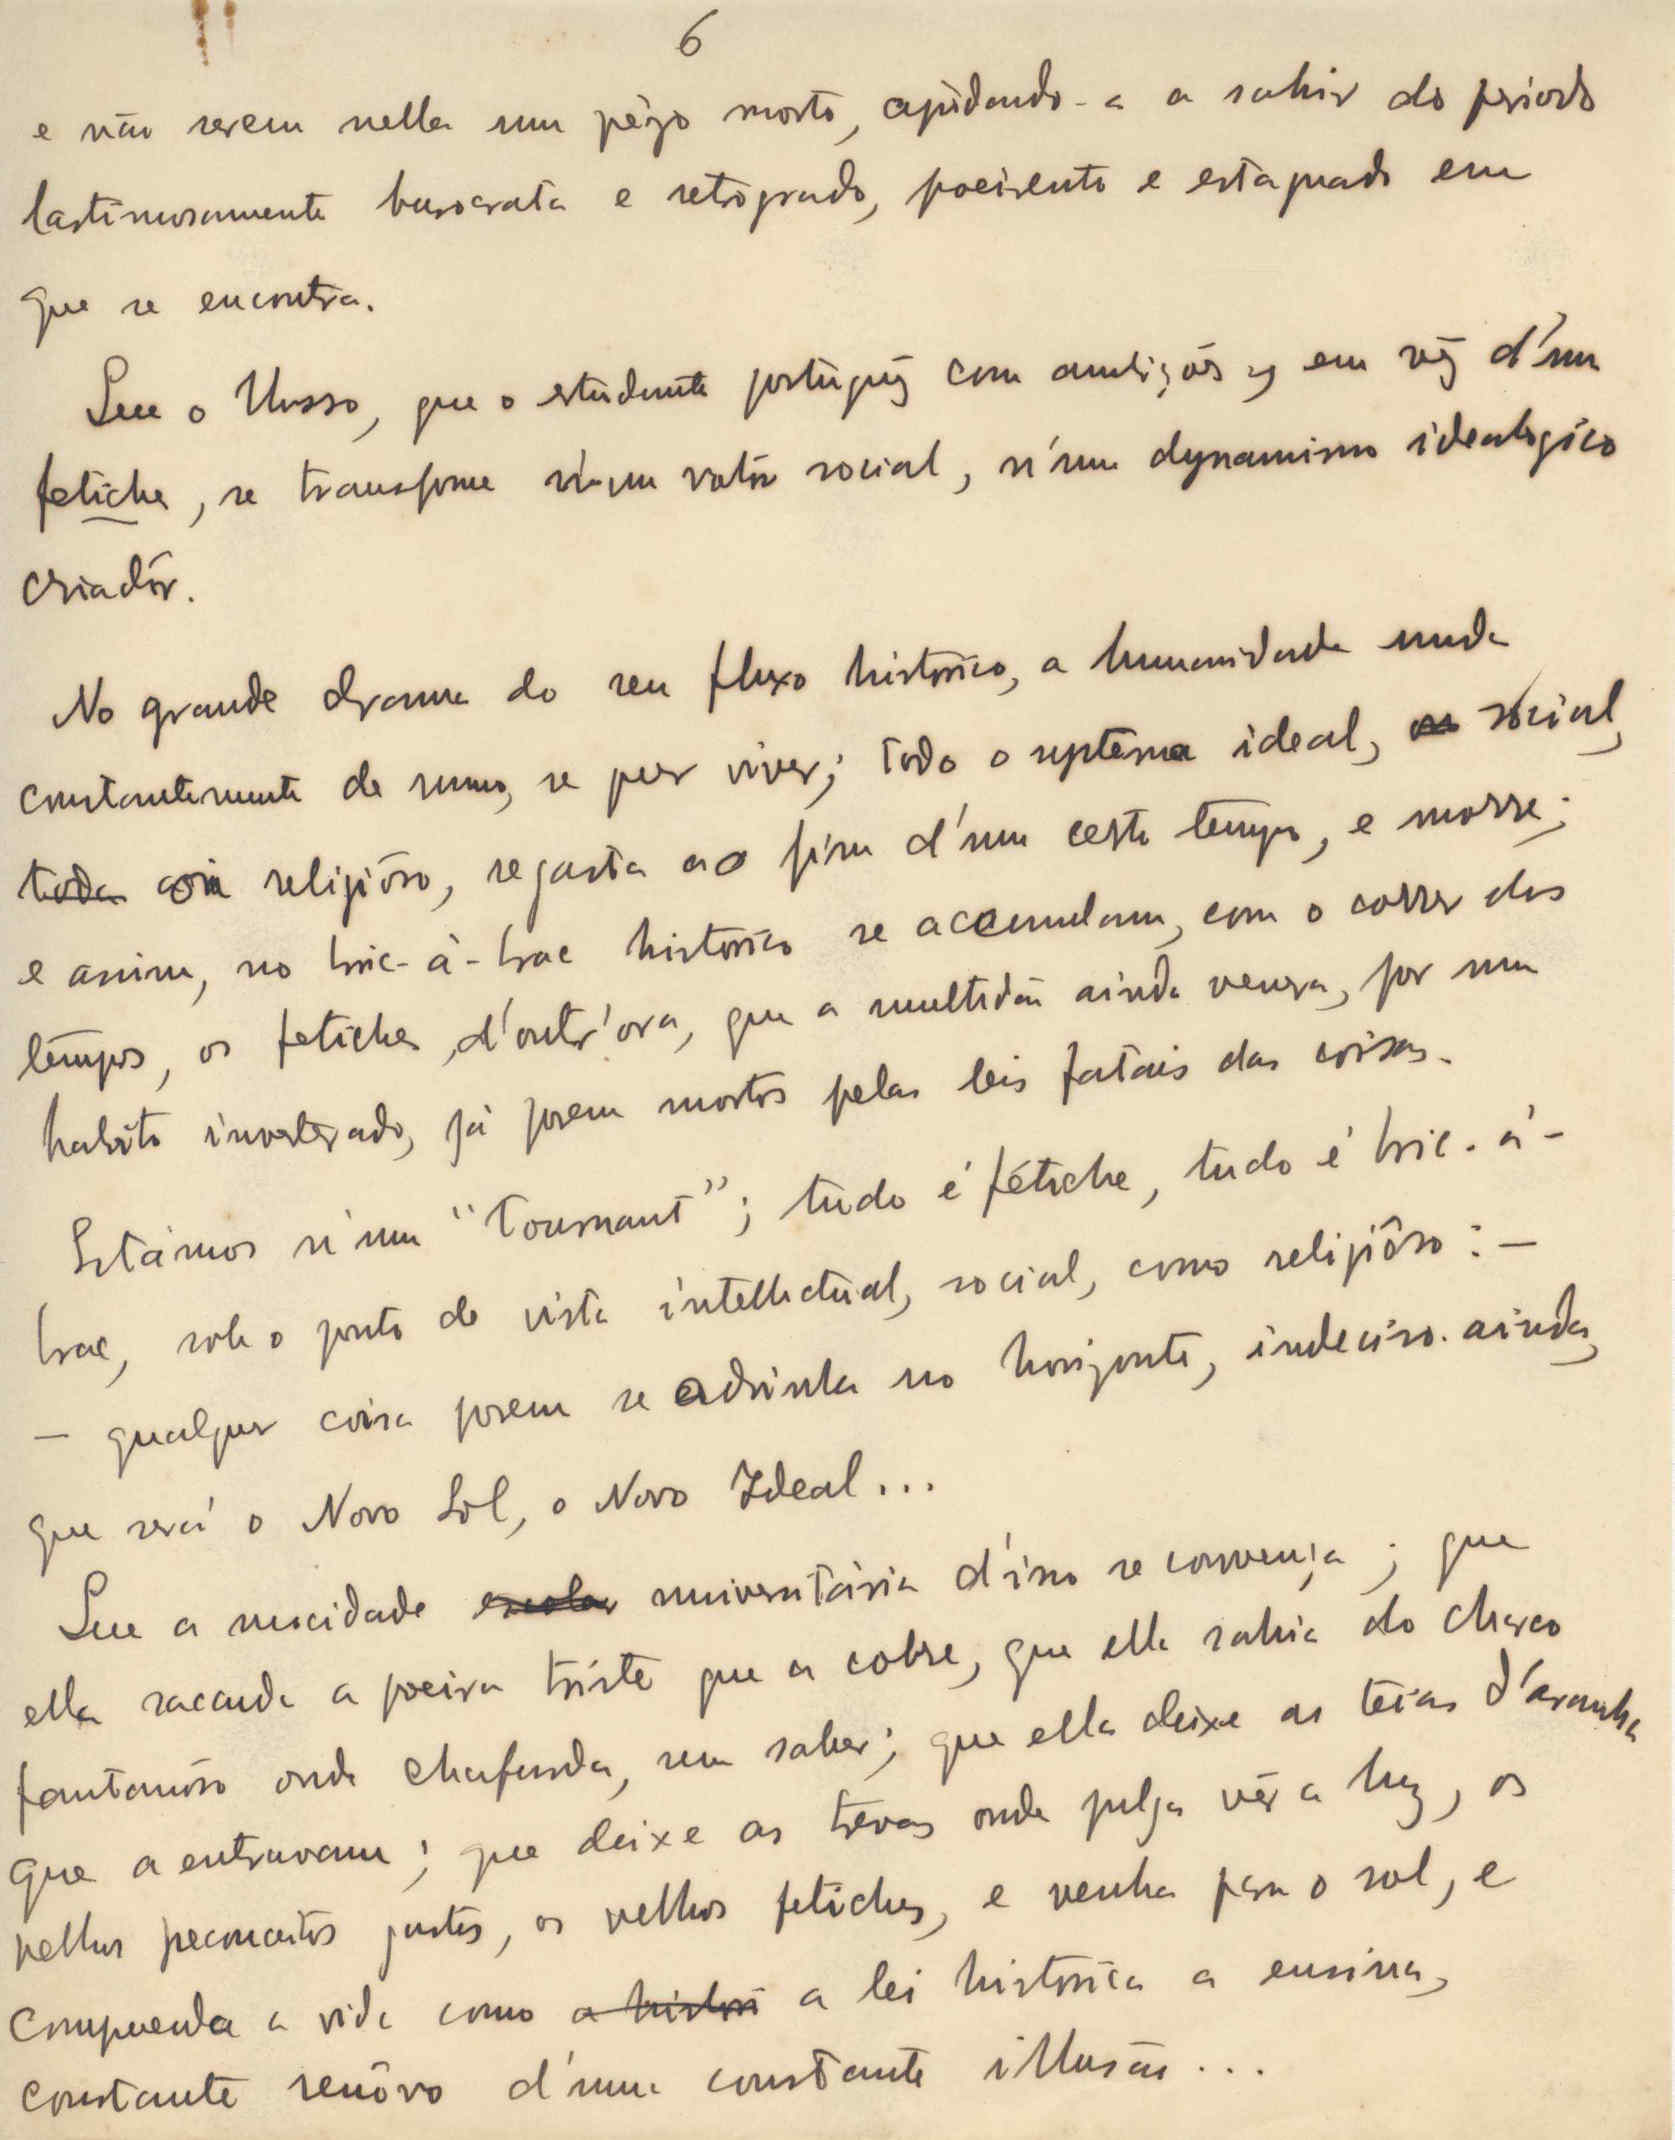 6
e não serem nella um pêgo morto, ajudando-a a sahir do periodo
lastimosamente burocrata e retrogrado, poeirento e estagnado em
que se encontra.
Que o Urso, que o estudante portuguêz com em vêz d'um
fetiche, se transforme n'um valôr social, n'um dynamismo idealogico
criadôr.
No grande drama do seu fluxo historico, a humanidade muda
constantemente de rumo, se quer viver; todo o systema ideal, ou social,
toda religiôso, se gasta ao fim d'um certo tempo, e morre;
e assim, no bric-à-brac historico se accumulam, com o correr dos
tempos, os fetiches d'outr'ora, que a multidão ainda venera, por um
habito inveterado, já porem mortos pelas leis fataes das coisas.
Estâmos n'um "tournant"; tudo é fétiche, tudo é bric-à-
brac, sob o ponto de vista intellectual, social, como religiôso: —
— qualquer coisa porem se adivinha no horizonte, indeciso ainda,
que será o Novo Sol, o Novo Ideal...
Que a mocidade escolar universitária d'isso se convença; que
ella sacuda a poeira triste que a cobre, que ella sahia do charco
pantanôso onde chafurda, sem saber; que ella deixe as teias d'aranha
que a entravam; que deixe as trevas onde julga vêr a luz, os
velhos preconceitos gastos, os velhos fetiches, e venha para o sol, e
comprenda a vida como a histori a lei historica a ensina,
constante renôvo d'uma constante illusão...